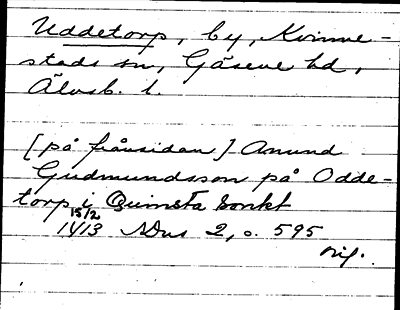 Uddetorp, by, Kvinne-
stads sn, Gäsene hd,
Älvsb. l.
[på frånsidan] Anund
Gudmundsson på Odde-
torp i Quimsta sonkt
15/2
1413 SDns 2, s. 595
orig.